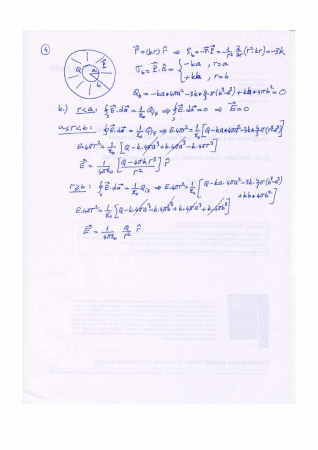 ④
Q a b
P⃗ = (kr) r̂ ⇒ ρ_b = -∇⃗·P⃗ = -1/r² ∂/∂r (r²·kr) = -3k
σ_b = P⃗·n̂ = { -ka , r=a
+kb , r=b
Q_b = -ka·4πa² - 3k·4/3·π(b³-a³) + kb·4πb² = 0
b.) r<a: ∮ E⃗·da⃗ = 1/ε₀ Q_iç ⇒ ∮ E⃗·da⃗ = 0 ⇒ E⃗ = 0
a≤r<b: ∮ E⃗·da⃗ = 1/ε₀ Q_iç ⇒ E·4πr² = 1/ε₀ [Q-ka·4πa²-3k·4/3π(r³-a³)]
E·4πr² = 1/ε₀ [Q-k·4πa³+k·4πa³-k·4πr³]
E⃗ = 1/4πε₀ [Q-4πkr³ / r²] r̂
r≥b: ∮ E⃗·da⃗ = 1/ε₀ Q_iç ⇒ E·4πr² = 1/ε₀ [Q-ka·4πa²-3k·4/3π(b³-a³)
+kb·4πb²]
E·4πr² = 1/ε₀ [Q-k·4πa³-k·4πb³+k·4πa³+k·4πb³]
E⃗ = 1/4πε₀ Q/r² r̂